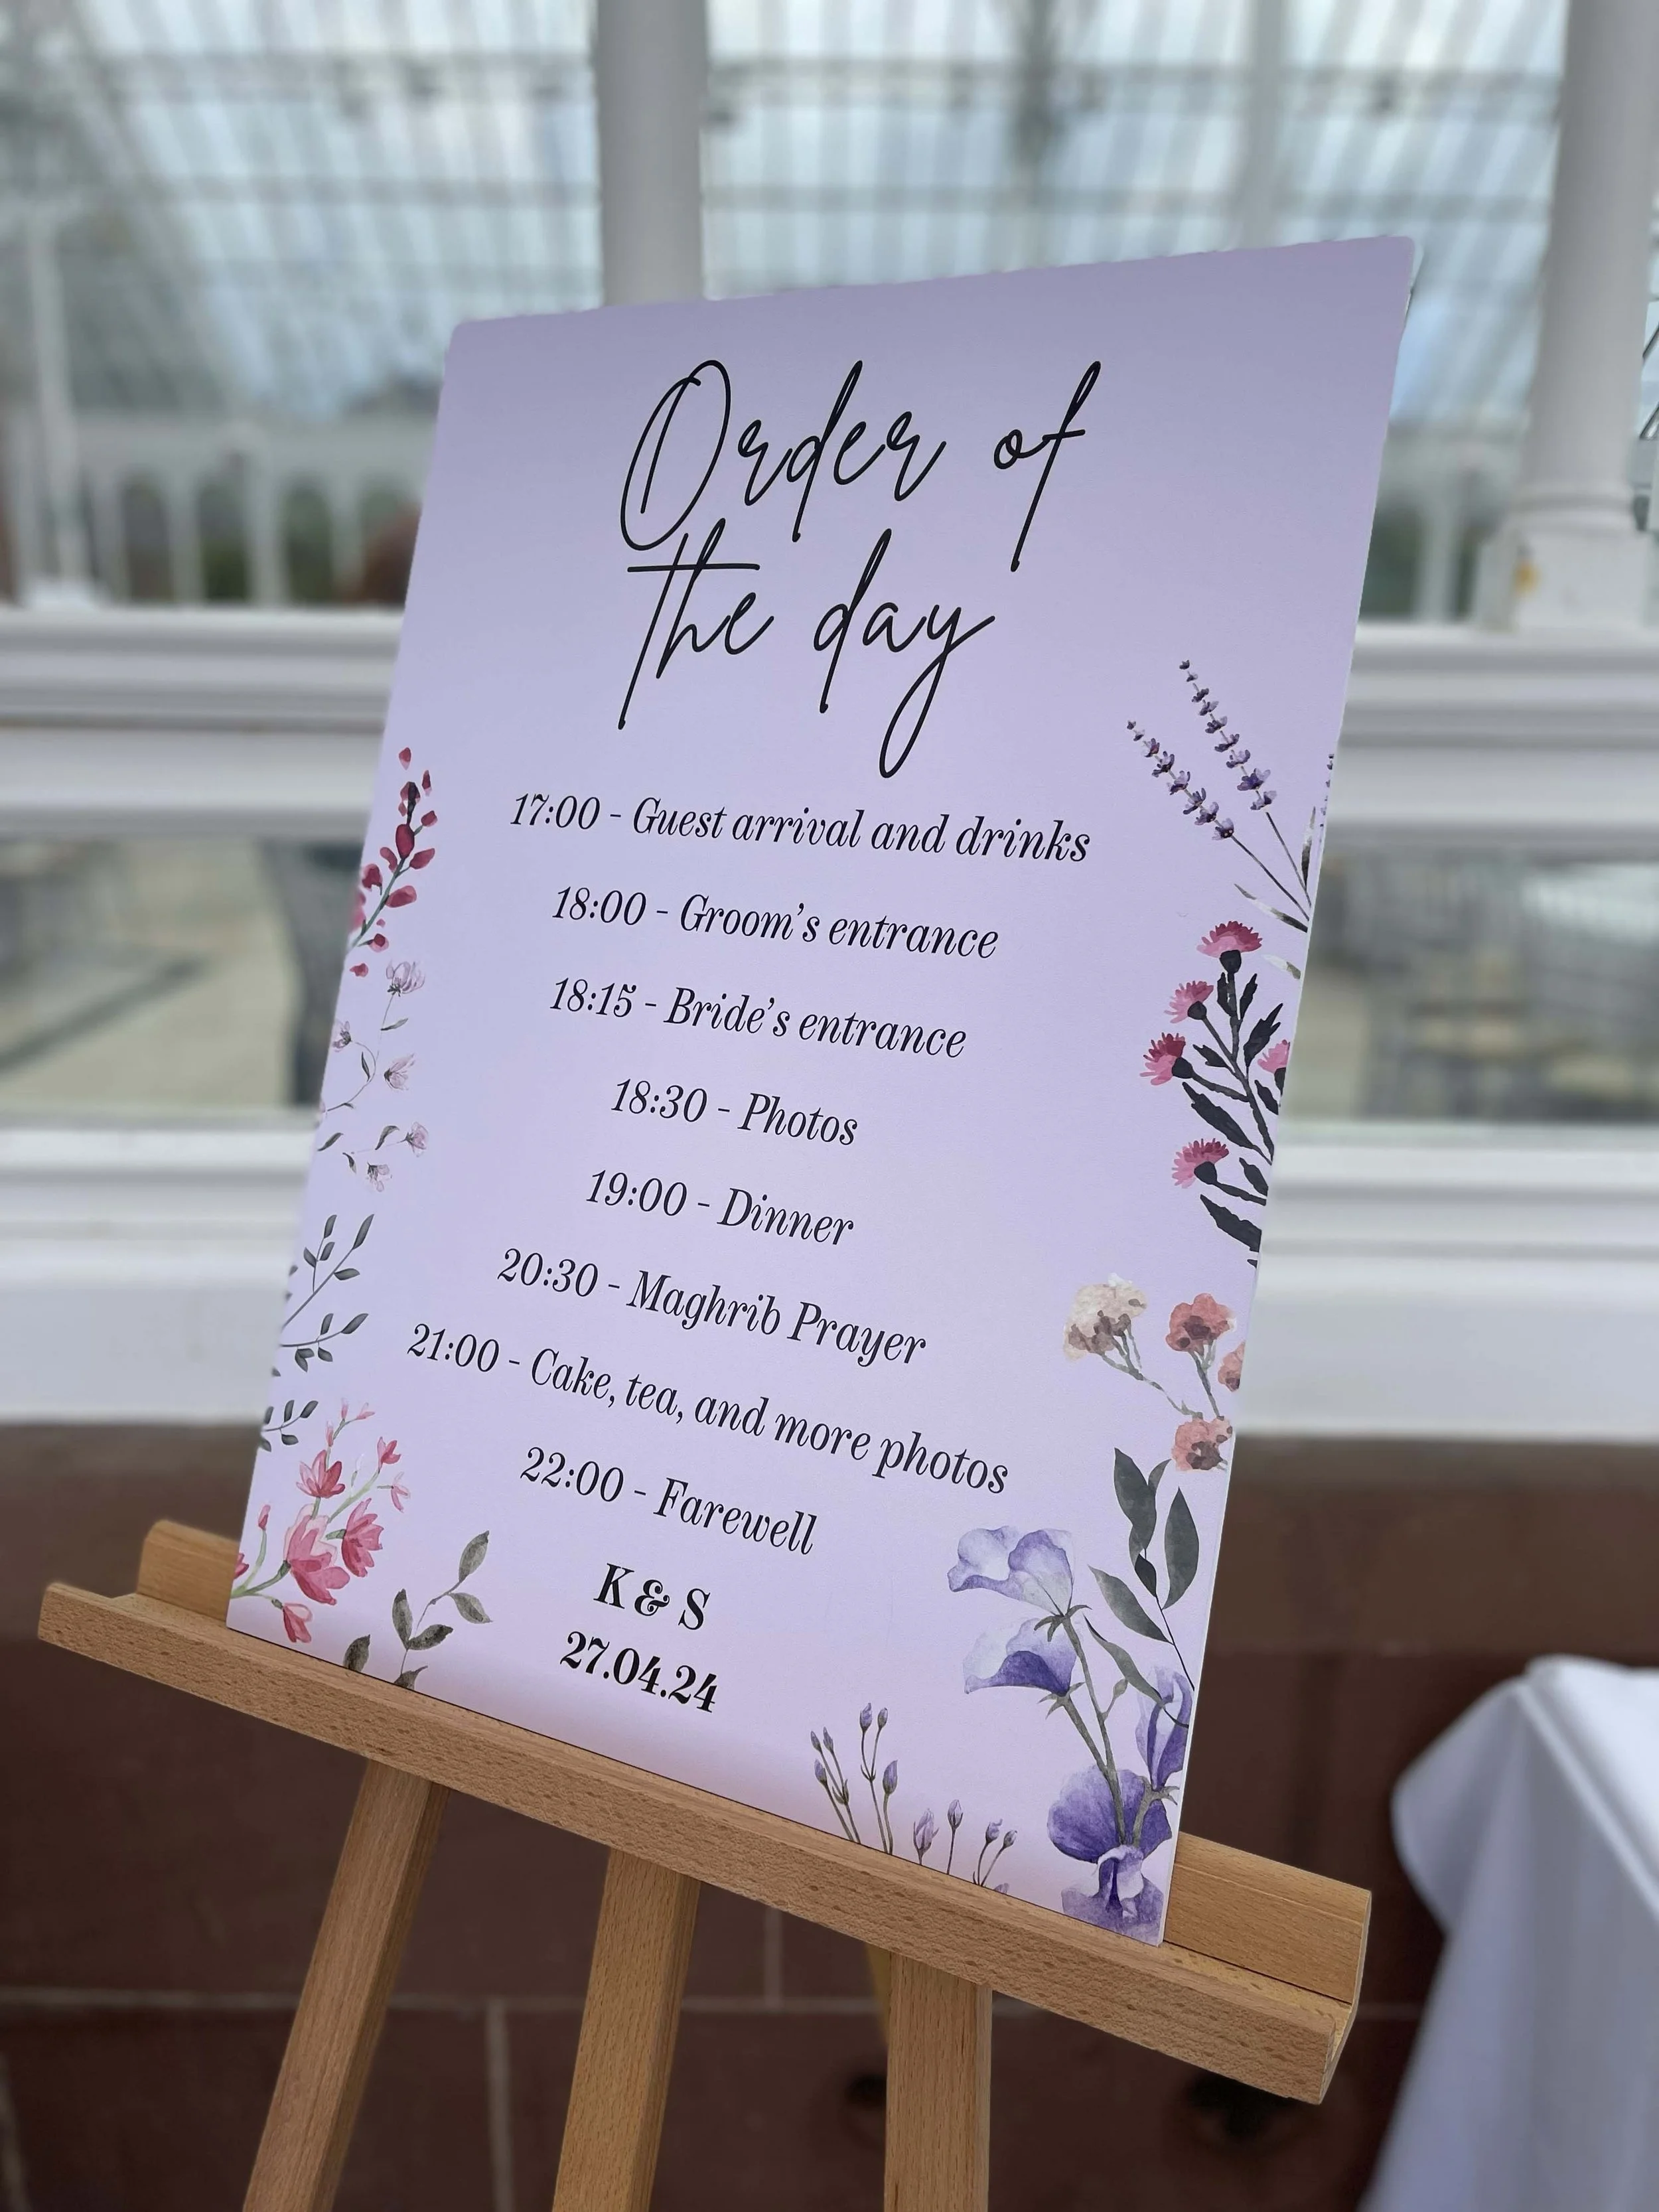 Order of
the day
17:00 - Guest arrival and drinks
18:00 - Groom's entrance
18:15 - Bride's entrance
18:30 - Photos
19:00 - Dinner
20:30 - Maghrib Prayer
21:00 - Cake, tea, and more photos
22:00 - Farewell
K & S
27.04.24